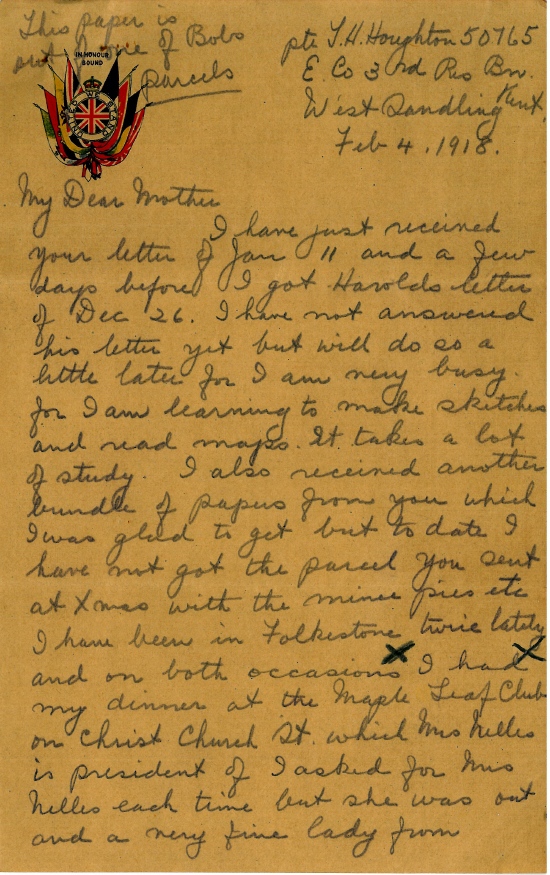 This paper is
out of one of Bobs
parcels
IN HONOUR
BOUND
pte T.H. Houghton 50765
E. Co 3rd Res Bn.
West Sandling Kent.
Feb 4. 1918.
My Dear Mother
I have just received
your letter of Jan 11 and a few
days before I got Harolds letter
of Dec 26. I have not answered
his letter yet but will do so a
little later for I am very busy.
for I am learning to make sketches
and read maps. It takes a lot
of study. I also received another
bundle of papers from you which
I was glad to get but to date I
have not got the parcel you sent
at Xmas with the mince pies etc
I have been in Folkestone twice lately
and on both occasions I had
my dinner at the Maple Leaf Club
on Christ Church St. which Mrs Nelles
is president of I asked for Mrs
Nelles each time but she was out
and a very fine lady from